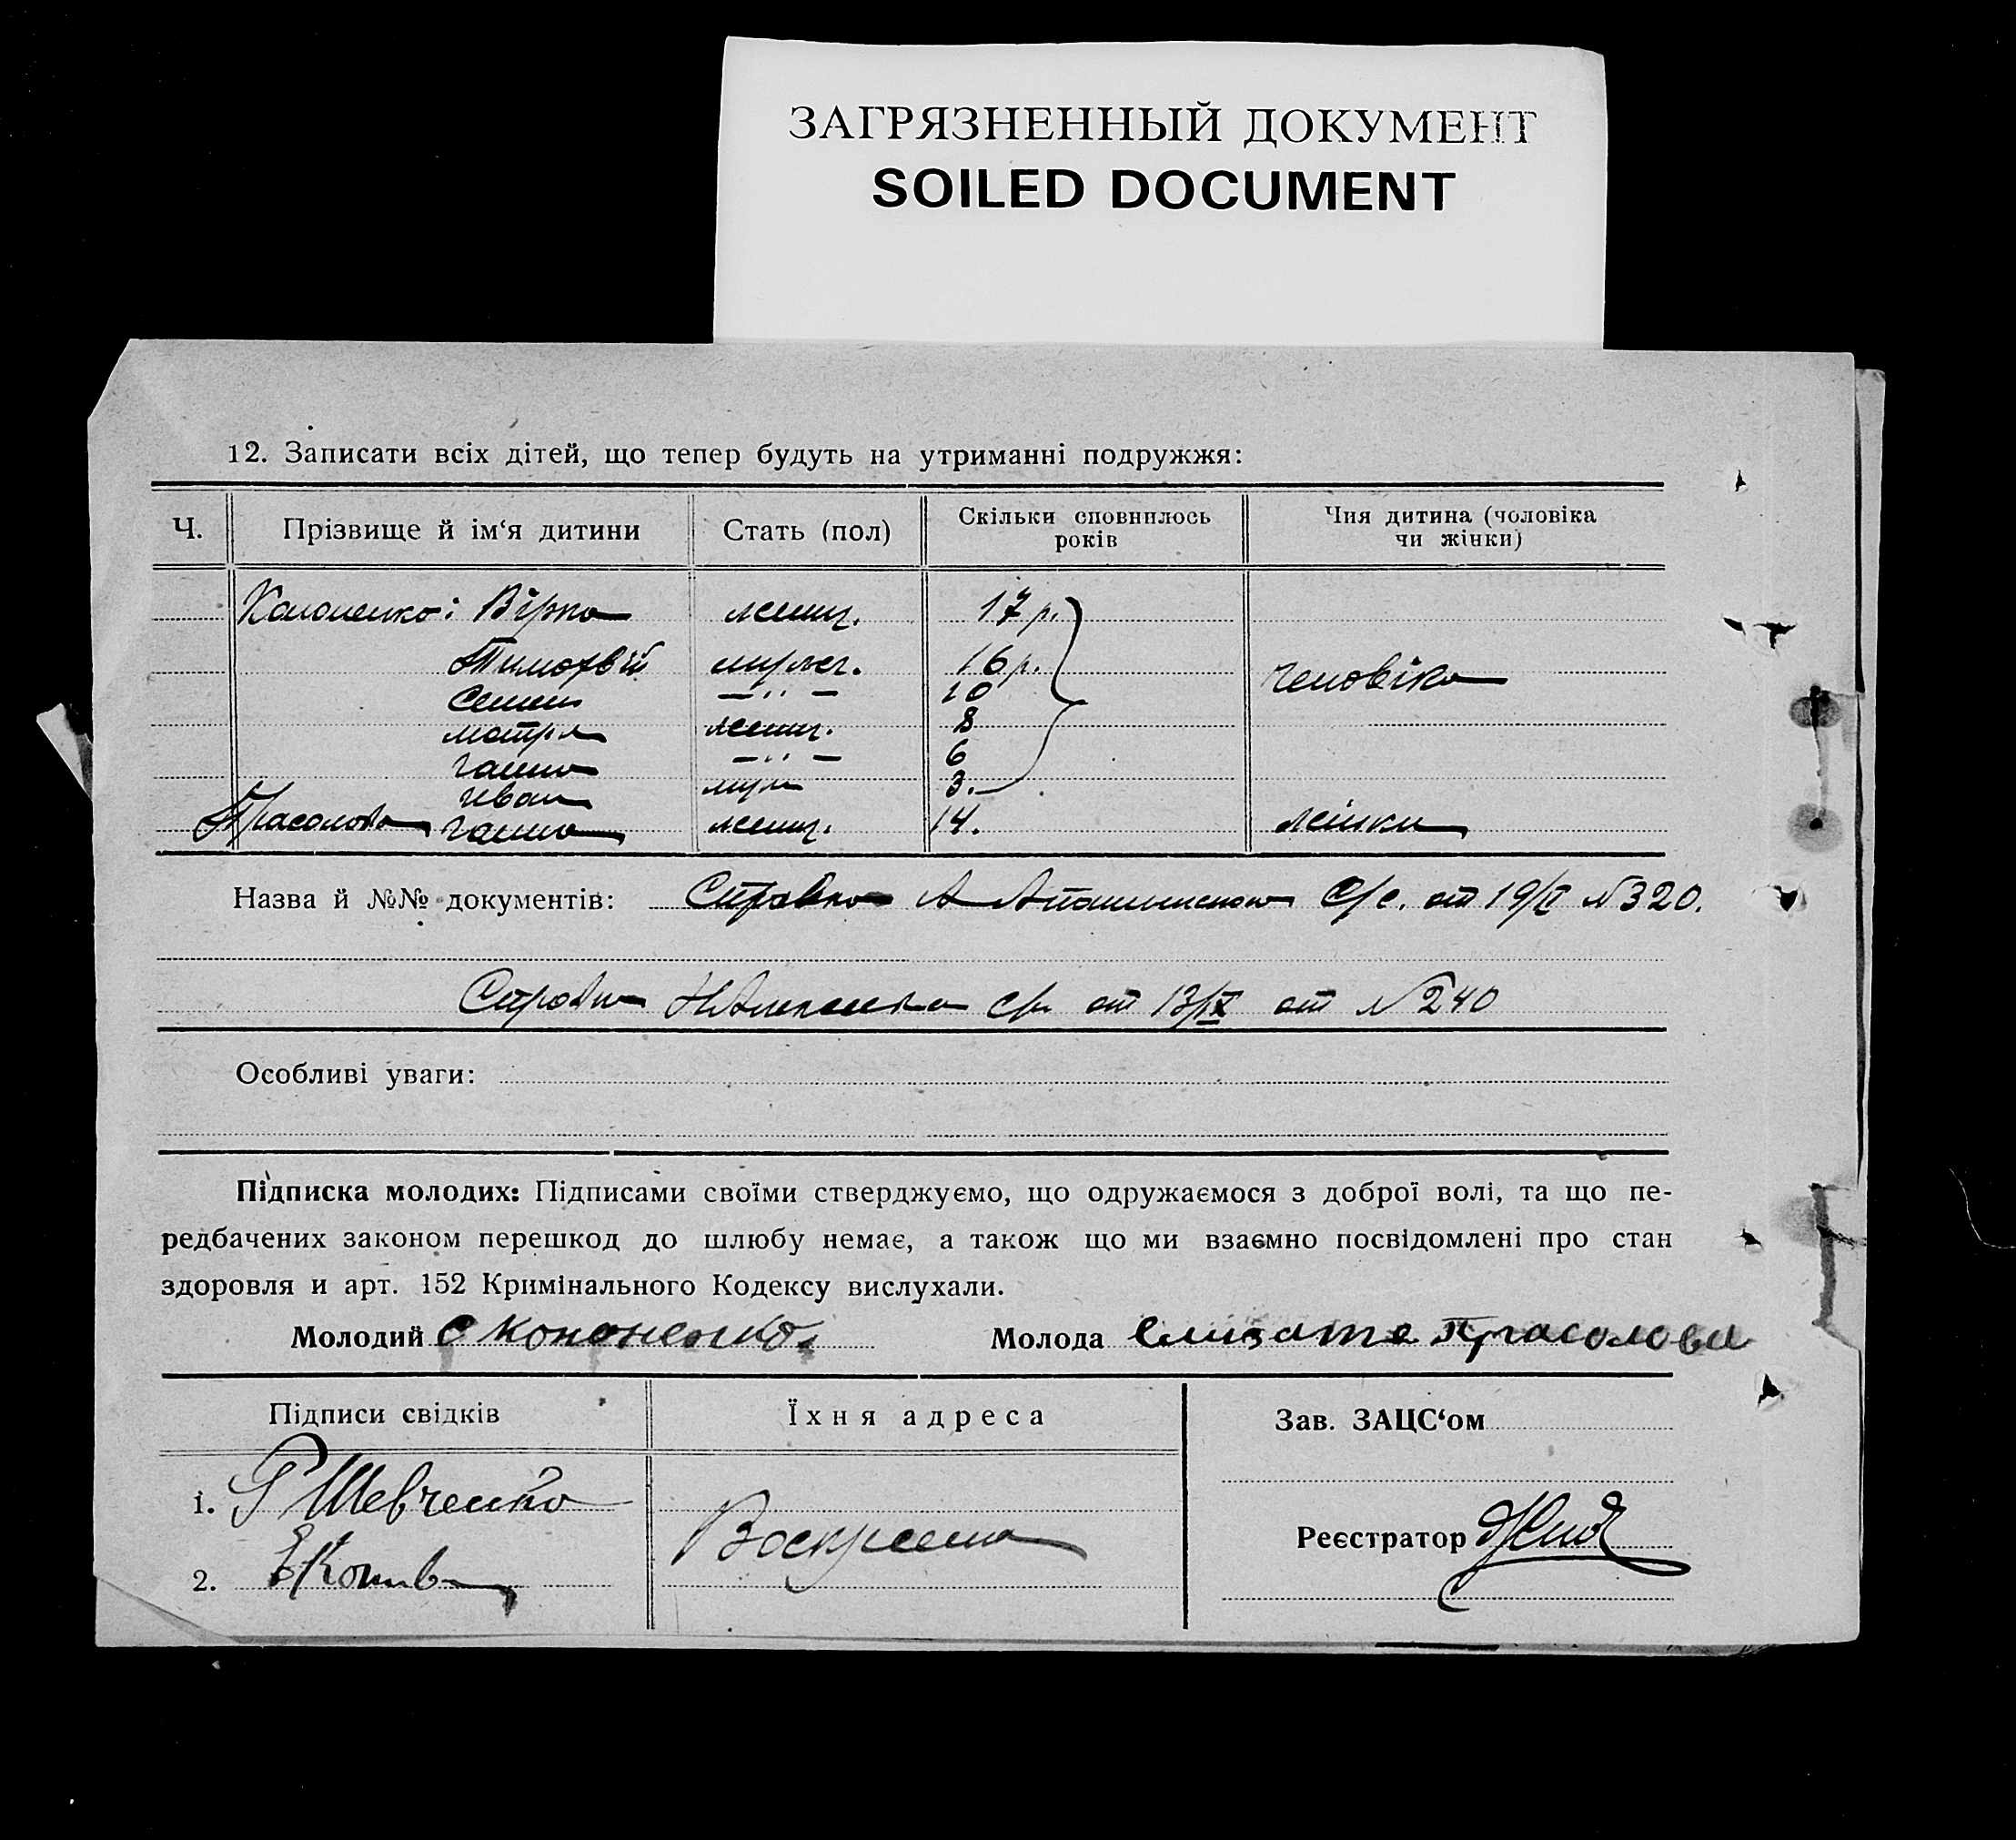 ЗАГРЯЗНЕННЫЙ ДОКУМЕНТ
SOILED DOCUMENT
12. Записати всіх дітей, що тепер будуть на утриманні подружжя:
Ч. Прізвище й ім‘я дитини Стать (пол) Скільки сповнилось років Чия дитина (чоловіка чи жінки)
Кононенко: Вірка женщ. 17 р.
Тимофвій мужч. 16 р. человіка
Семен — " — 10
мотря женщ. 8
ганна — " — 6
иван муж 3.
Прасолова ганна женщ. 14. жінки
Назва й №№ документів: Справка С/с. от 19/ № 320.
Справка с/с от 13/IX от № 240
Особливі уваги:
Підписка молодих: Підписами своїми стверджуємо, що одружаємося з доброї волі, та що пе-
редбачених законом перешкод до шлюбу немає, а також що ми взаємно посвідомлені про стан
здоровля и арт. 152 Кримінального Кодексу вислухали.
Молодий С Кононенко Молода Елизата Прасолова
Підписи свідків Їхня адреса Зав. ЗАЦС‘ом
1. Р Шевченко
2. Реєстратор